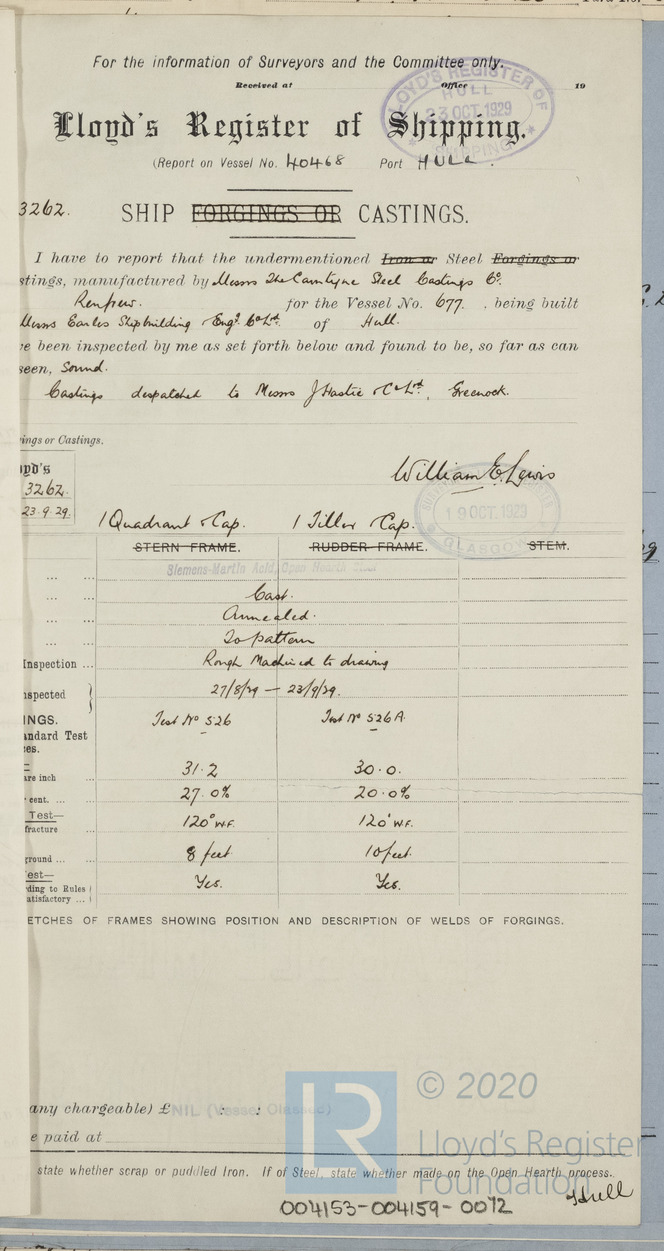 For the information of Surveyors and the Committee only.
Received at Office 19
LLOYD'S REGISTER OF SHIPPING HULL 23 OCT. 1929
Lloyd's Register of Shipping.
(Report on Vessel No. 40468 Port HULL.
3262.
SHIP FORGINGS OR CASTINGS.
I have to report that the undermentioned Iron or Steel Forgings or
stings, manufactured by Messrs The Carntyne Steel Castings Co.
Renfrew. for the Vessel No. 677. being built
Messrs Earles Shipbuilding & Engg Co Ltd. of Hull.
ve been inspected by me as set forth below and found to be, so far as can
seen, Sound.
Castings despatched to Messrs J Hastie & Co Ltd, Greenock.
ings or Castings.
William E. Lewis
oyd's
3262.
23.9.29.
19 OCT. 1929
GLASGOW
1 Quadrant & Cap. 1 Tiller & Cap.
STERN FRAME. RUDDER FRAME. STEM.
Siemens-Martin Acid, Open Hearth Steel
Cast.
Annealed.
To pattern
Inspection ... Rough Machined to drawing
spected 27/8/29 — 23/9/29.
INGS. Test No 526 Test No 526A.
andard Test
es.
are inch 31.2 30.0.
cent. ... 27.0% 20.0%
Test—
fracture 120° W.F. 120° W.F.
ground ... 8 feet 10 feet.
est—
ding to Rules Yes. Yes.
atisfactory ...
ETCHES OF FRAMES SHOWING POSITION AND DESCRIPTION OF WELDS OF FORGINGS.
any chargeable) £ NIL (Vessel Classed)
e paid at
state whether scrap or puddled Iron. If of Steel, state whether made on the Open Hearth process.
Hull
LR © 2020
Lloyd's Register
Foundation
004153-004159-0072